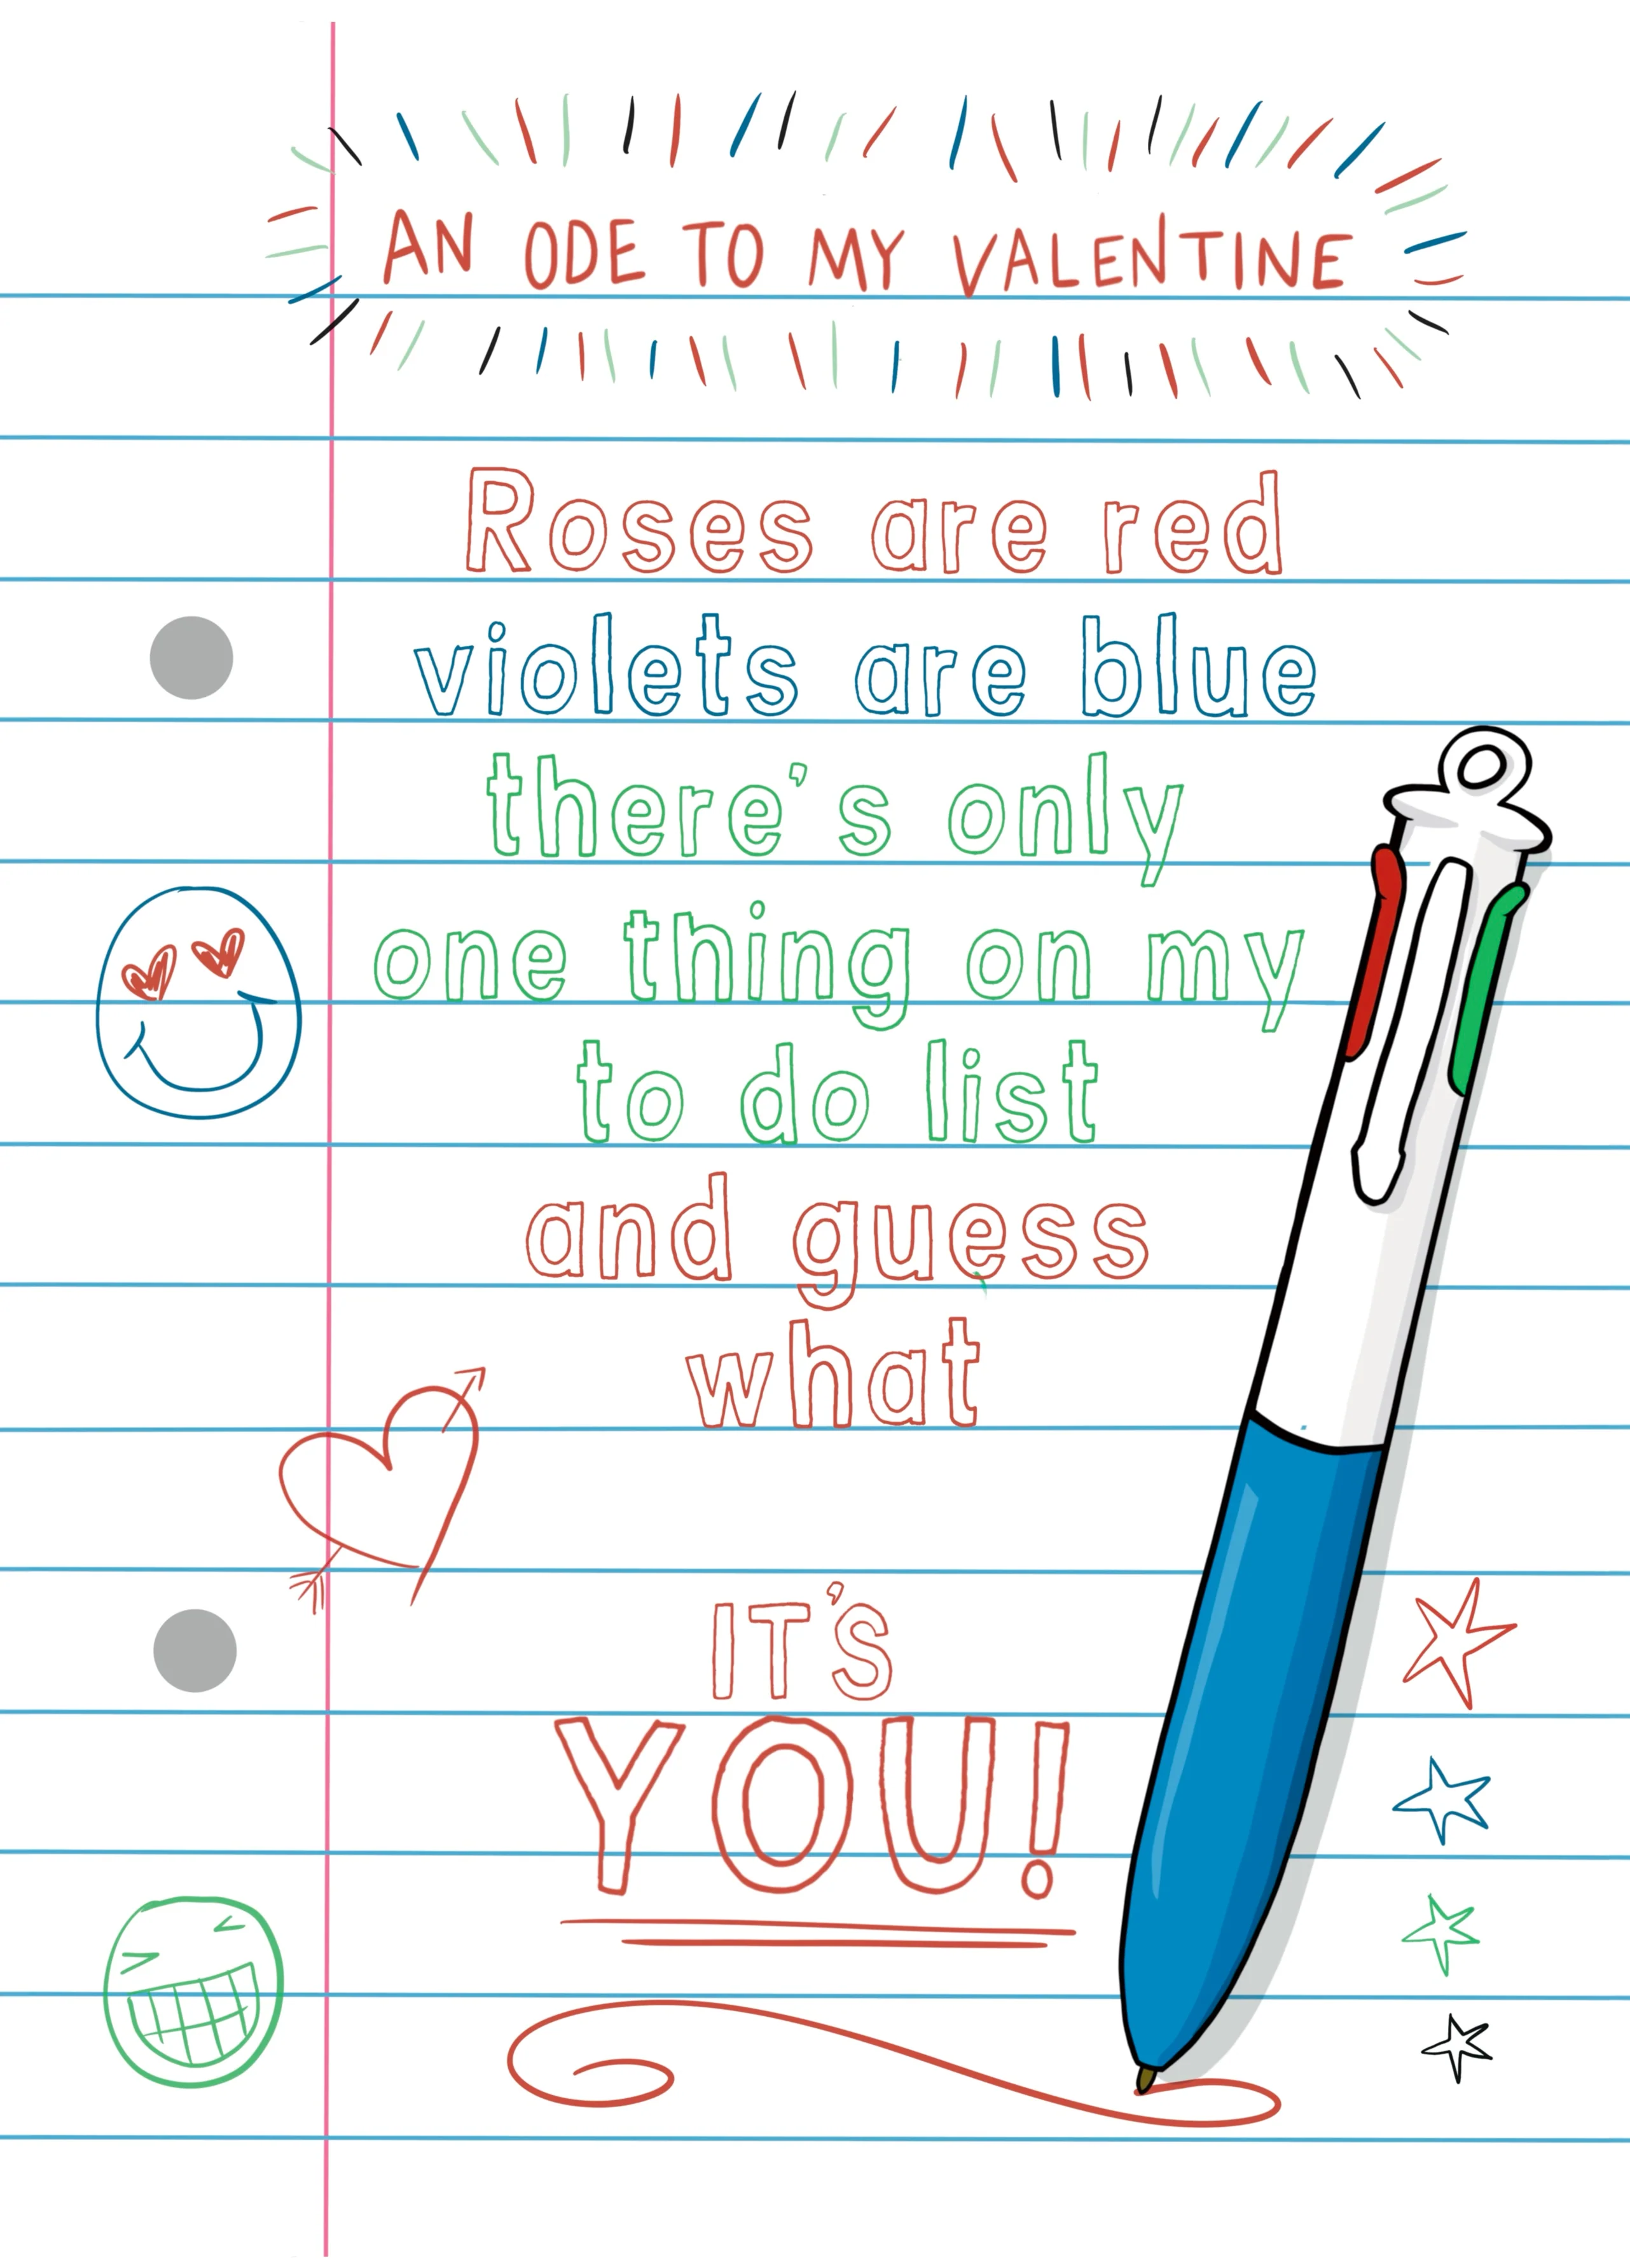 AN ODE TO MY VALENTINE
Roses are red
violets are blue
there's only
one thing on my
to do list
and guess
what
IT'S
YOU!